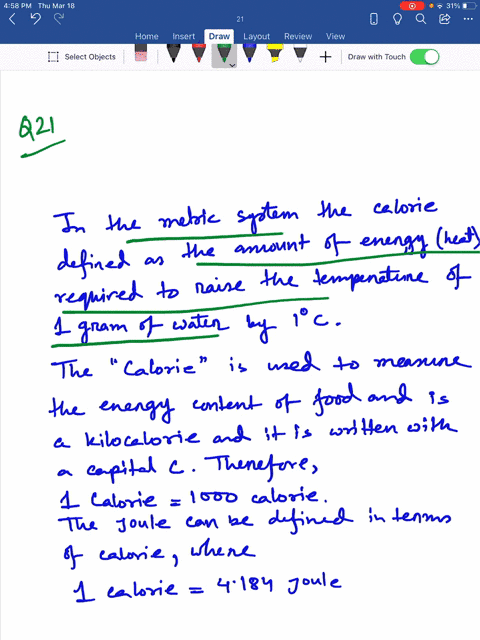 4:58 PM Thu Mar 18
31%
21
Home Insert Draw Layout Review View
Select Objects
Draw with Touch
Q21
In the metric system the calorie
defined as the amount of energy (heat)
required to raise the temperature of
1 gram of water by 1°C.
The "Calorie" is used to measure
the energy content of food and is
a kilocalorie and it is written with
a capital C. Therefore,
1 Calorie = 1000 calorie.
The Joule can be defined in terms
of calorie, where
1 calorie = 4.184 Joule